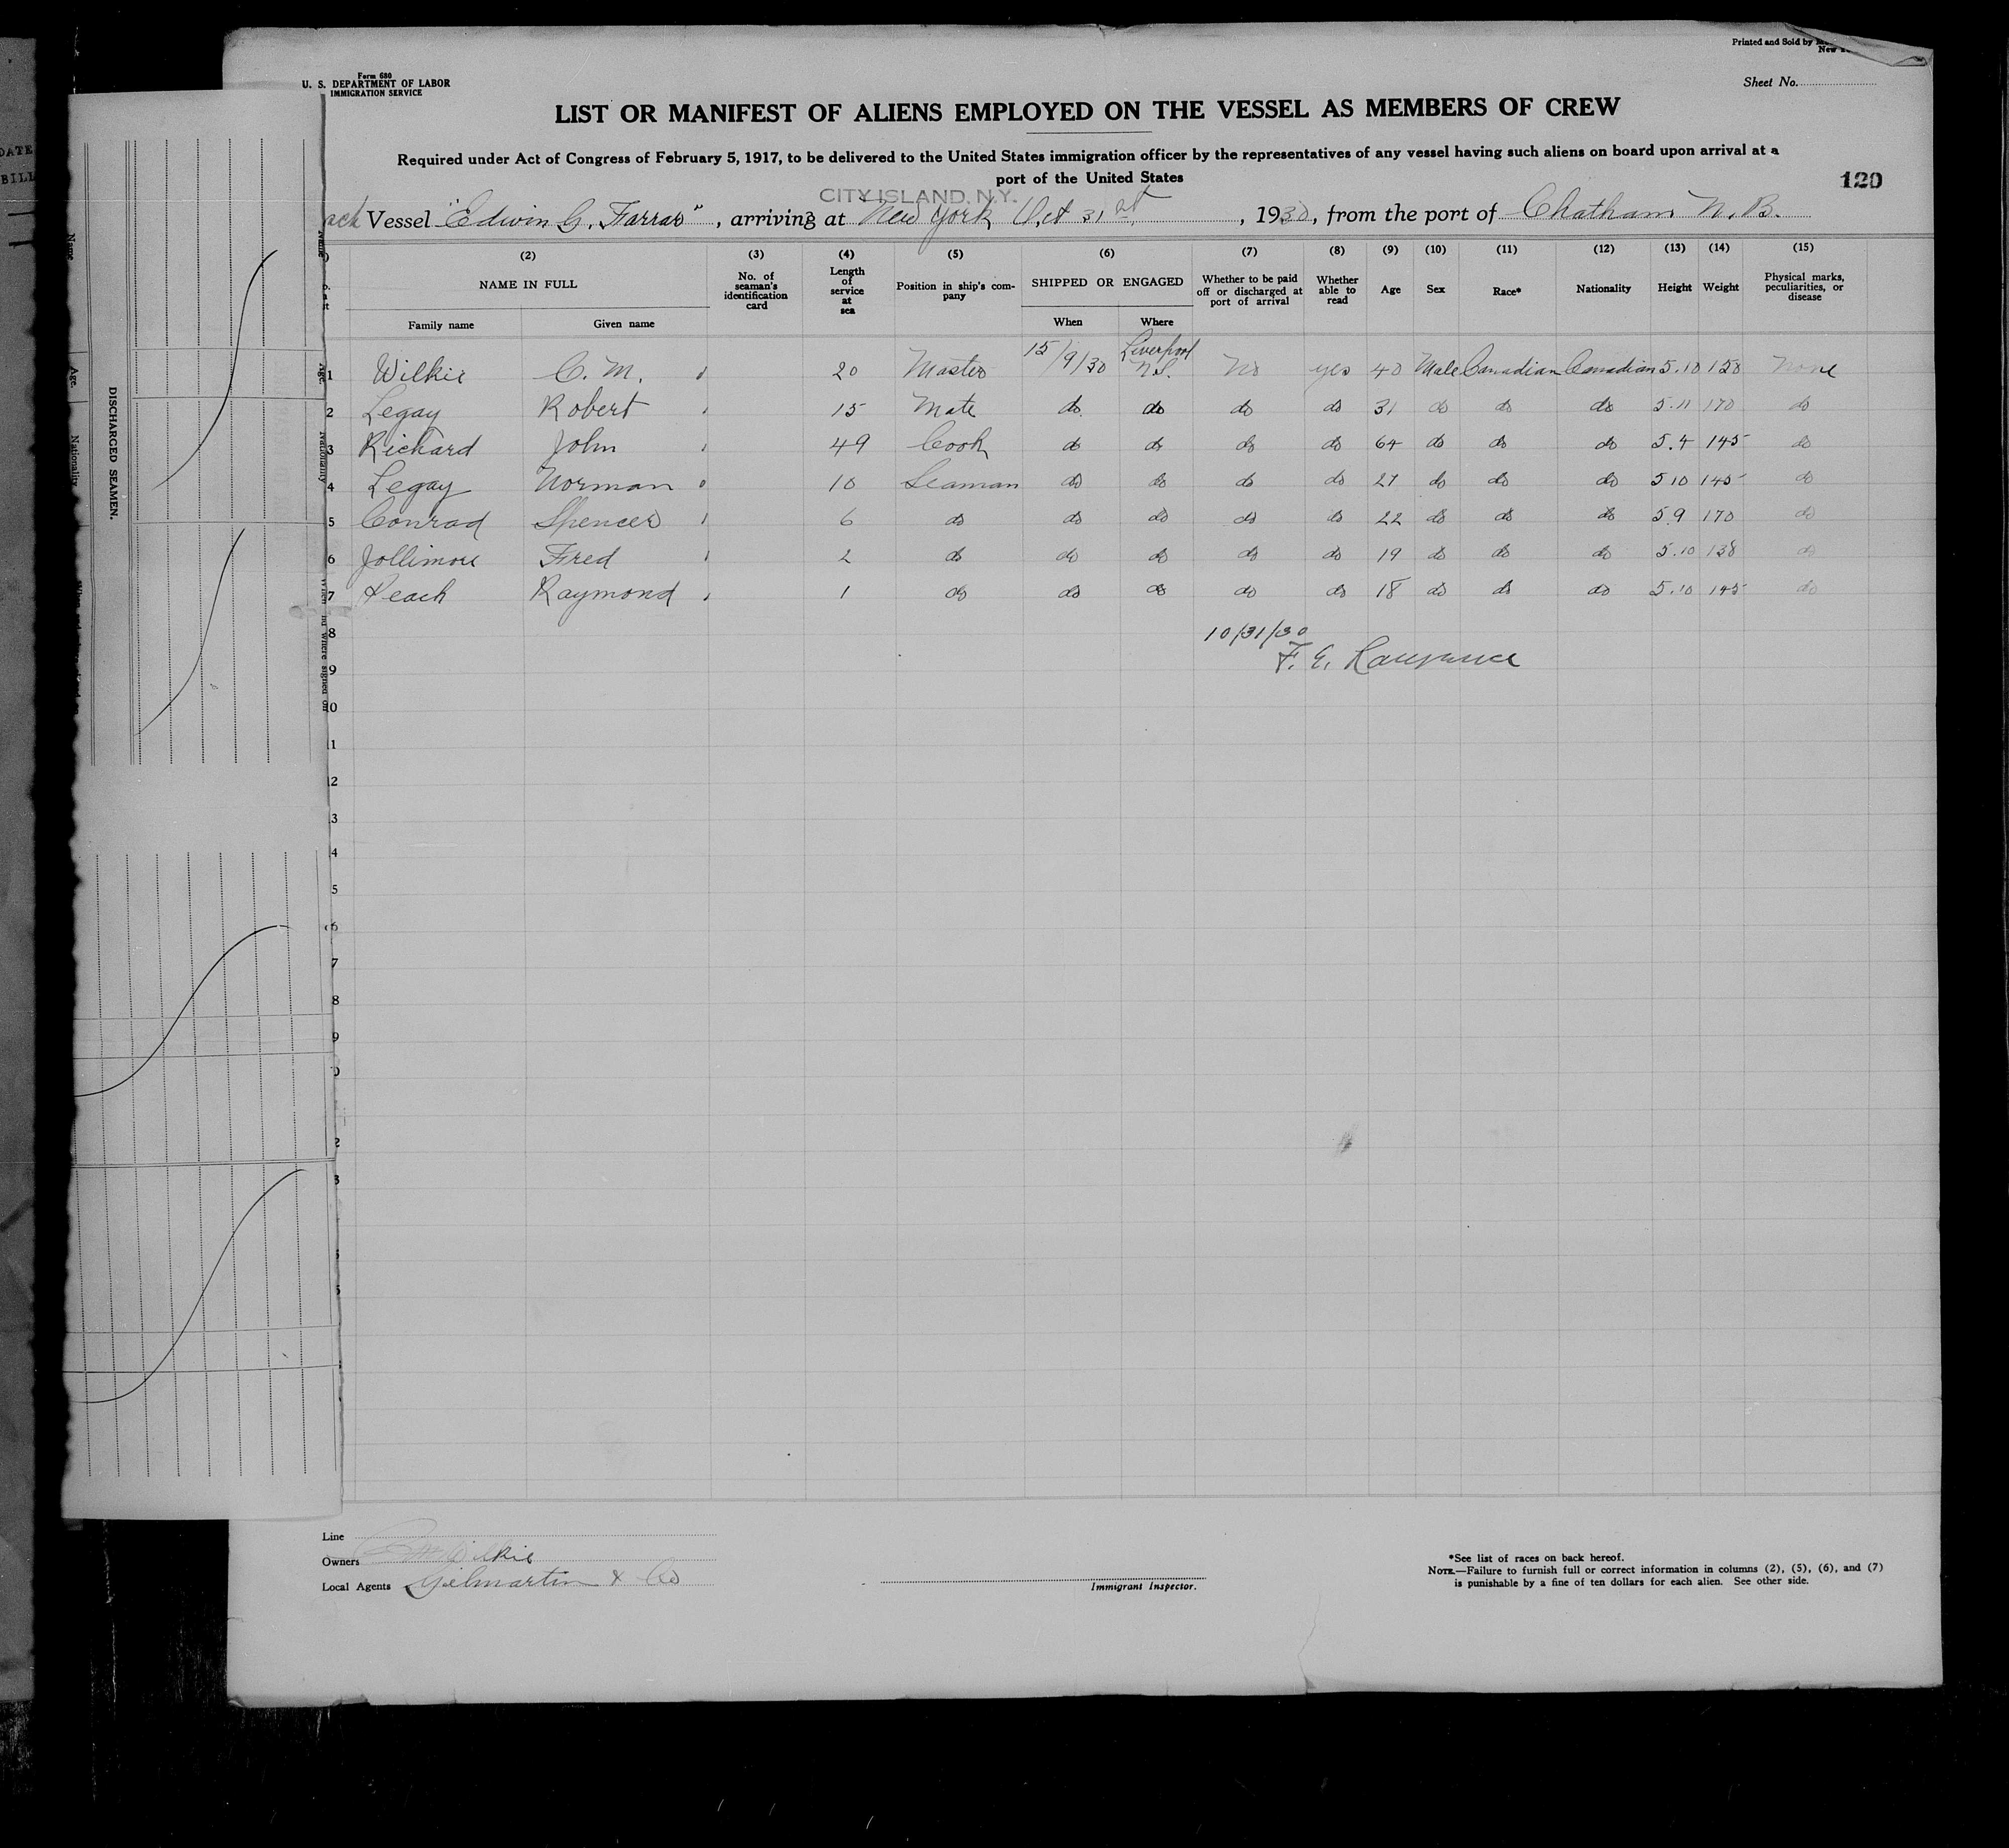 Printed and Sold by
Form 680
U. S. DEPARTMENT OF LABOR
IMMIGRATION SERVICE
Sheet No.
LIST OR MANIFEST OF ALIENS EMPLOYED ON THE VESSEL AS MEMBERS OF CREW
Required under Act of Congress of February 5, 1917, to be delivered to the United States immigration officer by the representatives of any vessel having such aliens on board upon arrival at a
port of the United States
120
CITY ISLAND, N.Y.
Vessel "Edwin G. Farrar", arriving at New York Oct 31st, 1930, from the port of Chatham N. B.
(2) (3) (4) (5) (6) (7) (8) (9) (10) (11) (12) (13) (14) (15)
NAME IN FULL No. of seaman's identification card Length of service at sea Position in ship's company SHIPPED OR ENGAGED Whether to be paid off or discharged at port of arrival Whether able to read Age Sex Race* Nationality Height Weight Physical marks, peculiarities, or disease
Family name Given name When Where
1 Wilkie C. M. 20 Master 15/9/30 Liverpool N.S. No yes 40 Male Canadian Canadian 5.10 158 None
2 Legay Robert 15 Mate do do do do 31 do do do 5.11 170 do
3 Richard John 49 Cook do do do do 64 do do do 5.4 145 do
4 Legay Norman 10 Seaman do do do do 27 do do do 5 10 145 do
5 Conrad Spencer 6 do do do do do 22 do do do 5.9 170 do
6 Jollimore Fred 2 do do do do do 19 do do do 5.10 138 do
7 Peach Raymond 1 do do do do do 18 do do do 5.10 145 do
8 10/31/30
9 F. E.
10
DISCHARGED SEAMEN.
Name
Age.
Nationality
DATE
BILL
Line
Owners C M Wilkie
Local Agents Gilmartin & Co
Immigrant Inspector.
*See list of races on back hereof.
NOTE.—Failure to furnish full or correct information in columns (2), (5), (6), and (7)
is punishable by a fine of ten dollars for each alien. See other side.